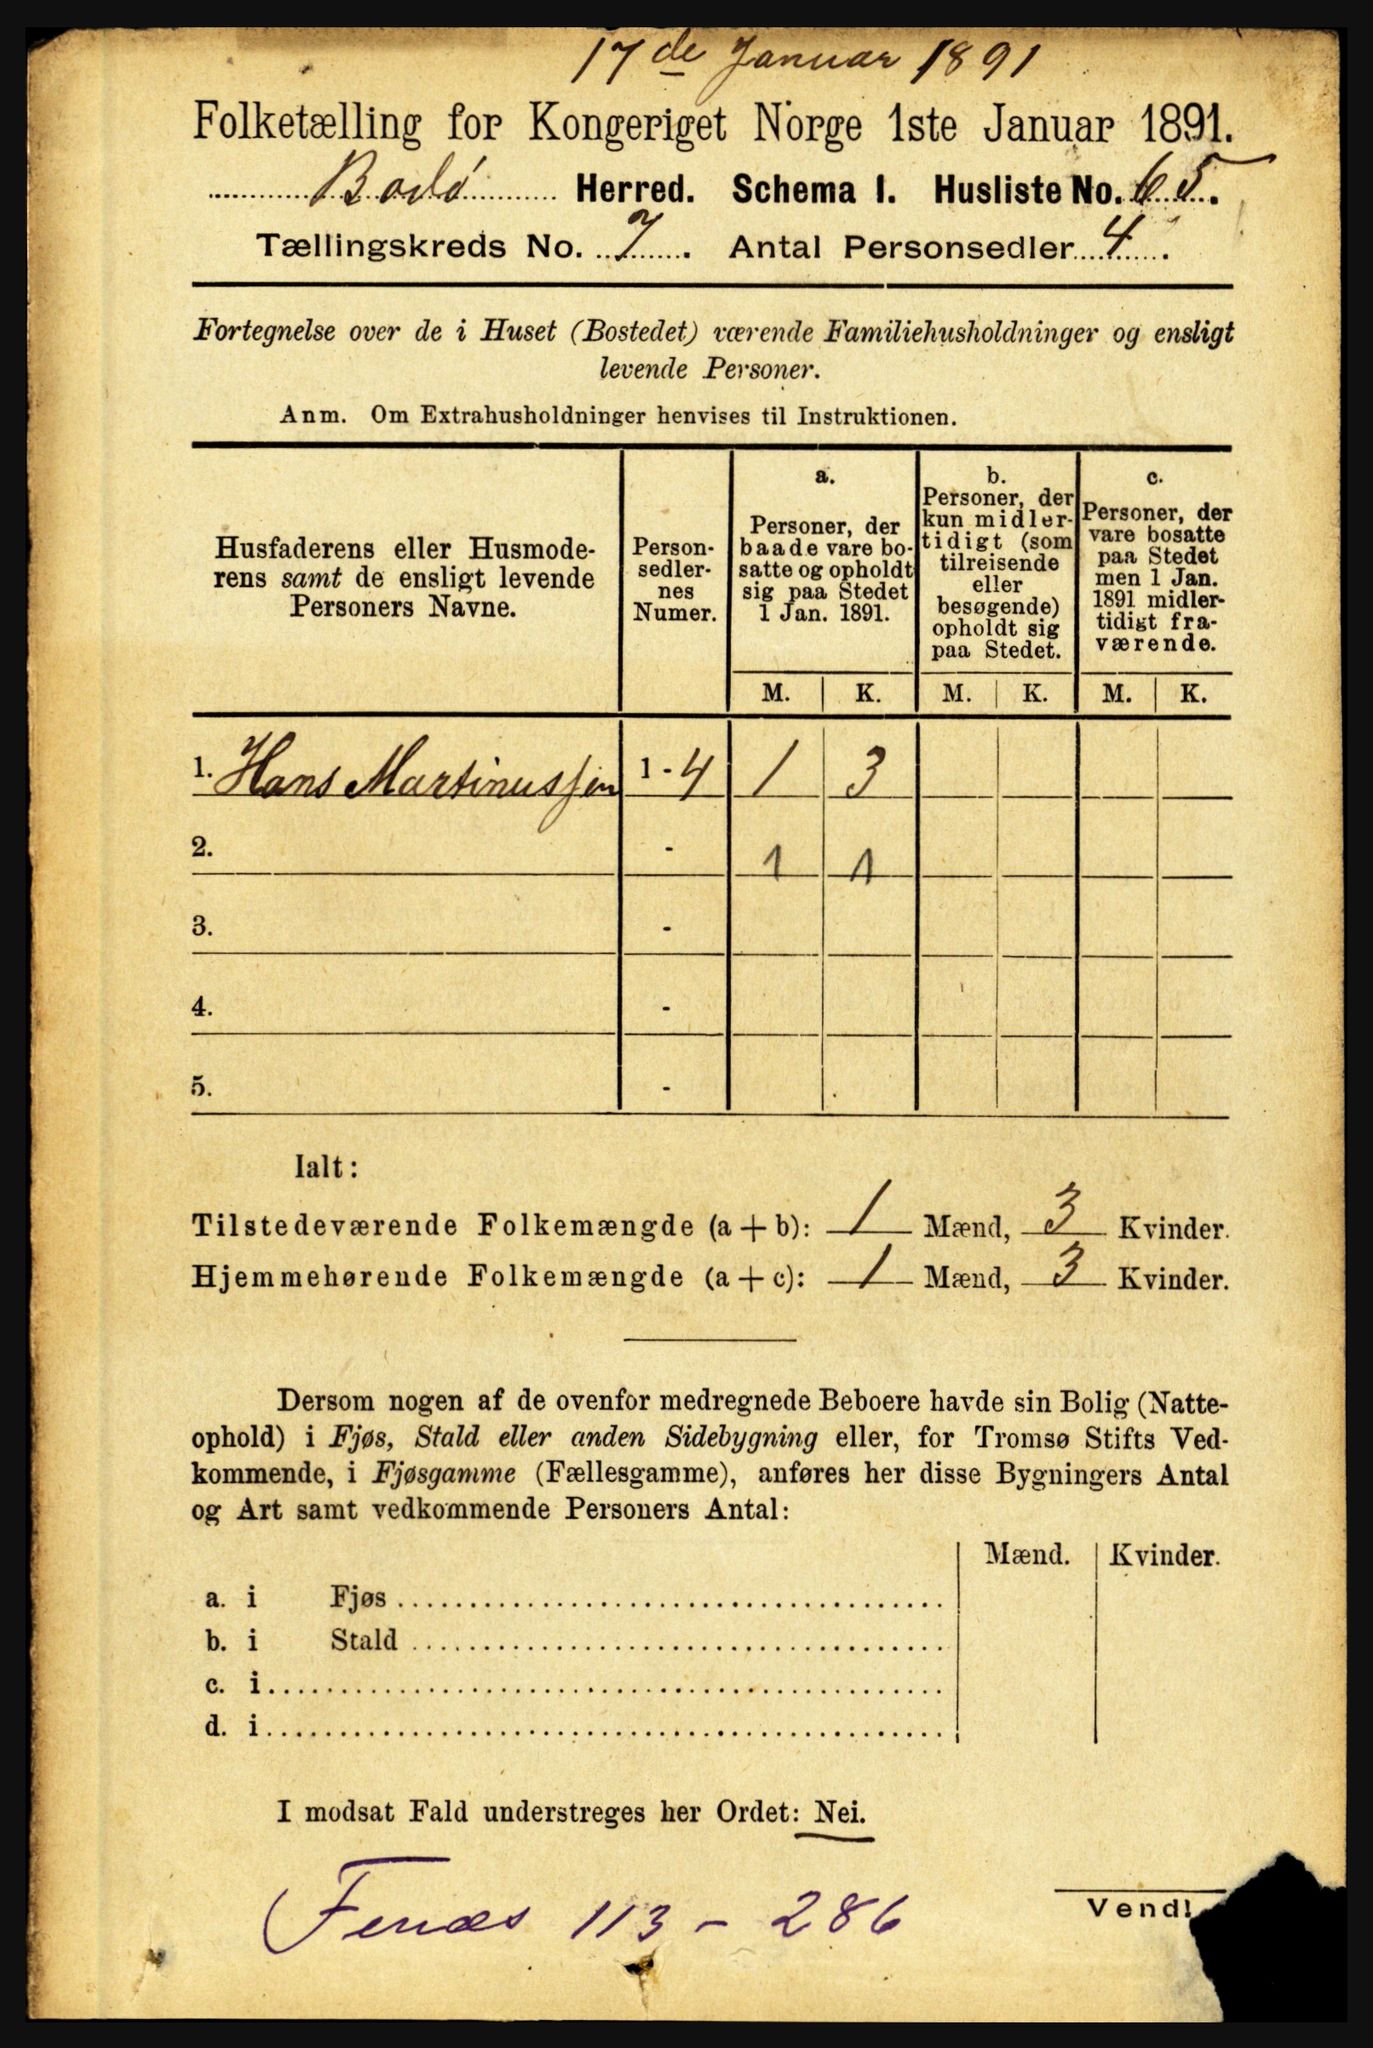 17de Januar 1891
Folketælling for Kongeriget Norge 1ste Januar 1891.
Bodø Herred. Schema I. Husliste No. 65.
Tællingskreds No. 7. Antal Personsedler 4.
Fortegnelse over de i Huset (Bostedet) værende Familiehusholdninger og ensligt
levende Personer.
Anm. Om Extrahusholdninger henvises til Instruktionen.
Husfaderens eller Husmode-
rens samt de ensligt levende
Personers Navne.
Person-
sedler-
nes
Numer.
a.
Personer, der
baade vare bo-
satte og opholdt
sig paa Stedet
1 Jan. 1891.
b.
Personer, der
kun midler-
tidigt (som
tilreisende
eller
besøgende)
opholdt sig
paa Stedet.
c.
Personer, der
vare bosatte
paa Stedet
men 1 Jan.
1891 midler-
tidigt fra-
værende.
M. K. M. K. M. K.
1. Hans Martinussen 1 - 4 1 3
2. - 1 1
3. -
4. -
5. -
Ialt:
Tilstedeværende Folkemængde (a + b): 1 Mænd, 3 Kvinder.
Hjemmehørende Folkemængde (a + c): 1 Mænd, 3 Kvinder.
Dersom nogen af de ovenfor medregnede Beboere havde sin Bolig (Natte-
ophold) i Fjøs, Stald eller anden Sidebygning eller, for Tromsø Stifts Ved-
kommende, i Fjøsgamme (Fællesgamme), anføres her disse Bygningers Antal
og Art samt vedkommende Personers Antal:
Mænd. Kvinder.
a. i Fjøs
b. i Stald
c. i
d. i
I modsat Fald understreges her Ordet: Nei.
Fenæs 113 - 286
Vend!